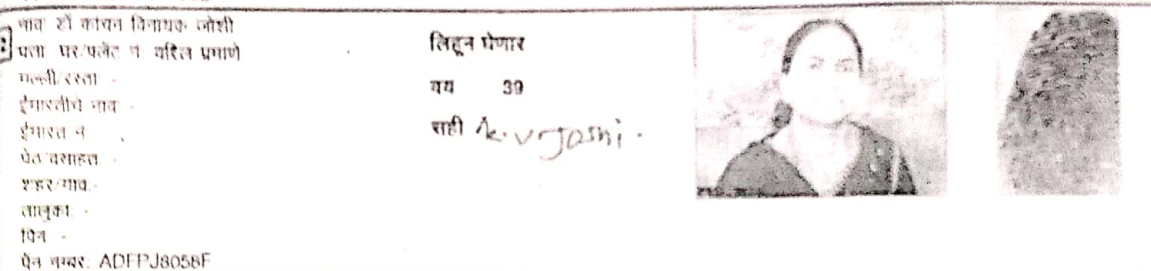 नाव डॉ कांचन विनायक जोशी
पत्ता घर/फ्लॅट नं वरिल प्रमाणे
गल्ली/रस्ता -
ईमारतीचे नाव -
ईमारत नं -
पेठ/वसाहत -
शहर/गाव:-
तालुका: -
पिन -
पॅन नम्बर: ADFPJ8058F
लिहून घेणार
वय 39
सही K.V.Joshi.